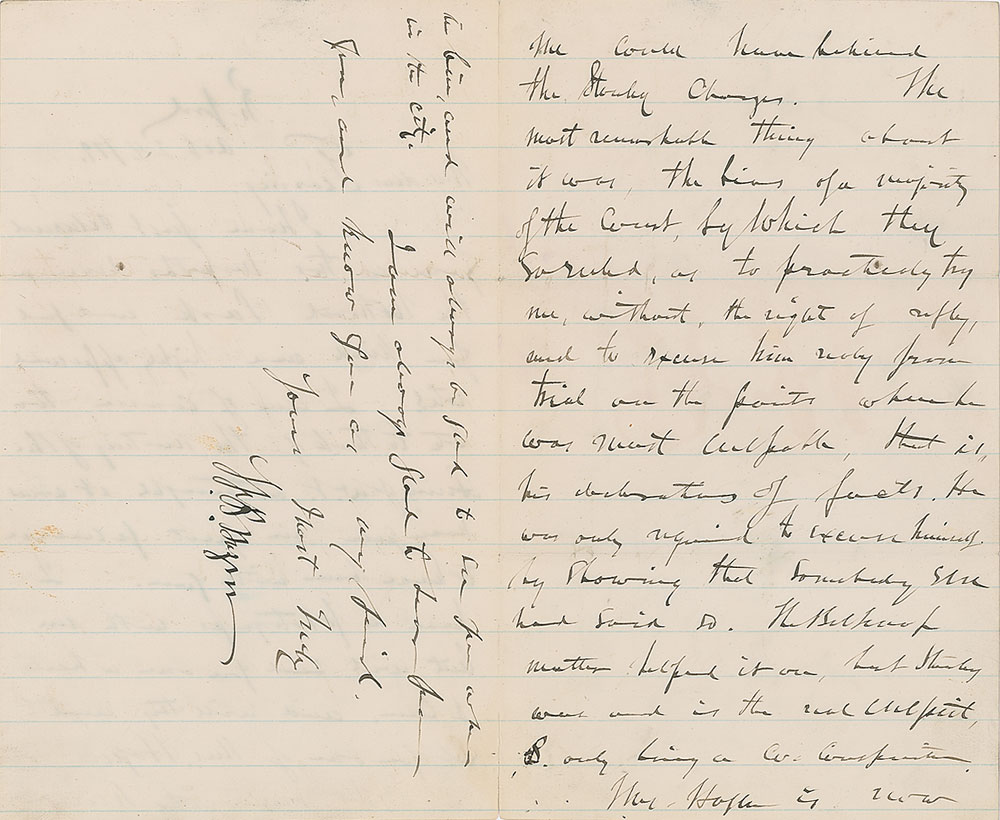 He could have behind
the Stanley Charges. The
most remarkable thing about
it was, the bias of a majority
of the Court, by which they
so ruled, as to practicaly try
me, without, the right of reply,
and to excuse him realy from
trial on the points where he
was most culpable, that is,
his declarations of facts. He
was only required to excuse himself
by showing that somebody else
had said so. The Belknap
matter helped it on, but Stanley
was and is the real culpret,
B. only being a Co-Conspirator.
Mrs. Hazen is now
and will always be glad to see you when
in the city.
I am always glad to hear from
you, and know you as my friend.
Yours Most Truly
W.B. Hazen